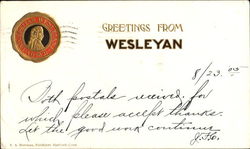 GREETINGS FROM
WESLEYAN
8/23.05
Both postals received, for
which please accept thanks.
Let the good work continue